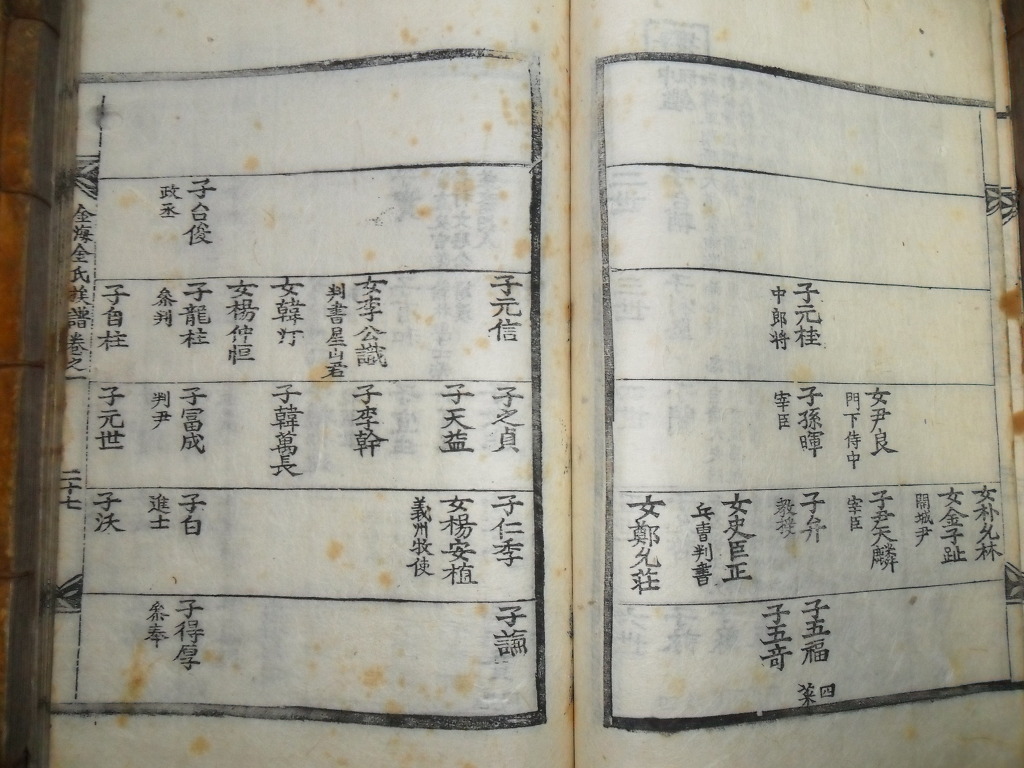 子元桂
中郎將
女尹良
門下侍中
子孫暉
宰臣
女朴允林
女金子趾
開城尹
子尹天麟
宰臣
子弁
女史臣正
兵曹判書
女鄭允莊
子五福
子五奇
四
葉
子台俊
政丞
子元信
女李公識
判書星山君
女韓汀
女楊仲恒
子龍柱
叅判
子自柱
子之貞
子天益
子李幹
子韓萬長
子冨成
判尹
子元世
子仁季
女楊安植
義州牧使
子白
進士
子沃
子謐
子得厚
叅奉
金海金氏族譜卷之一
二十七